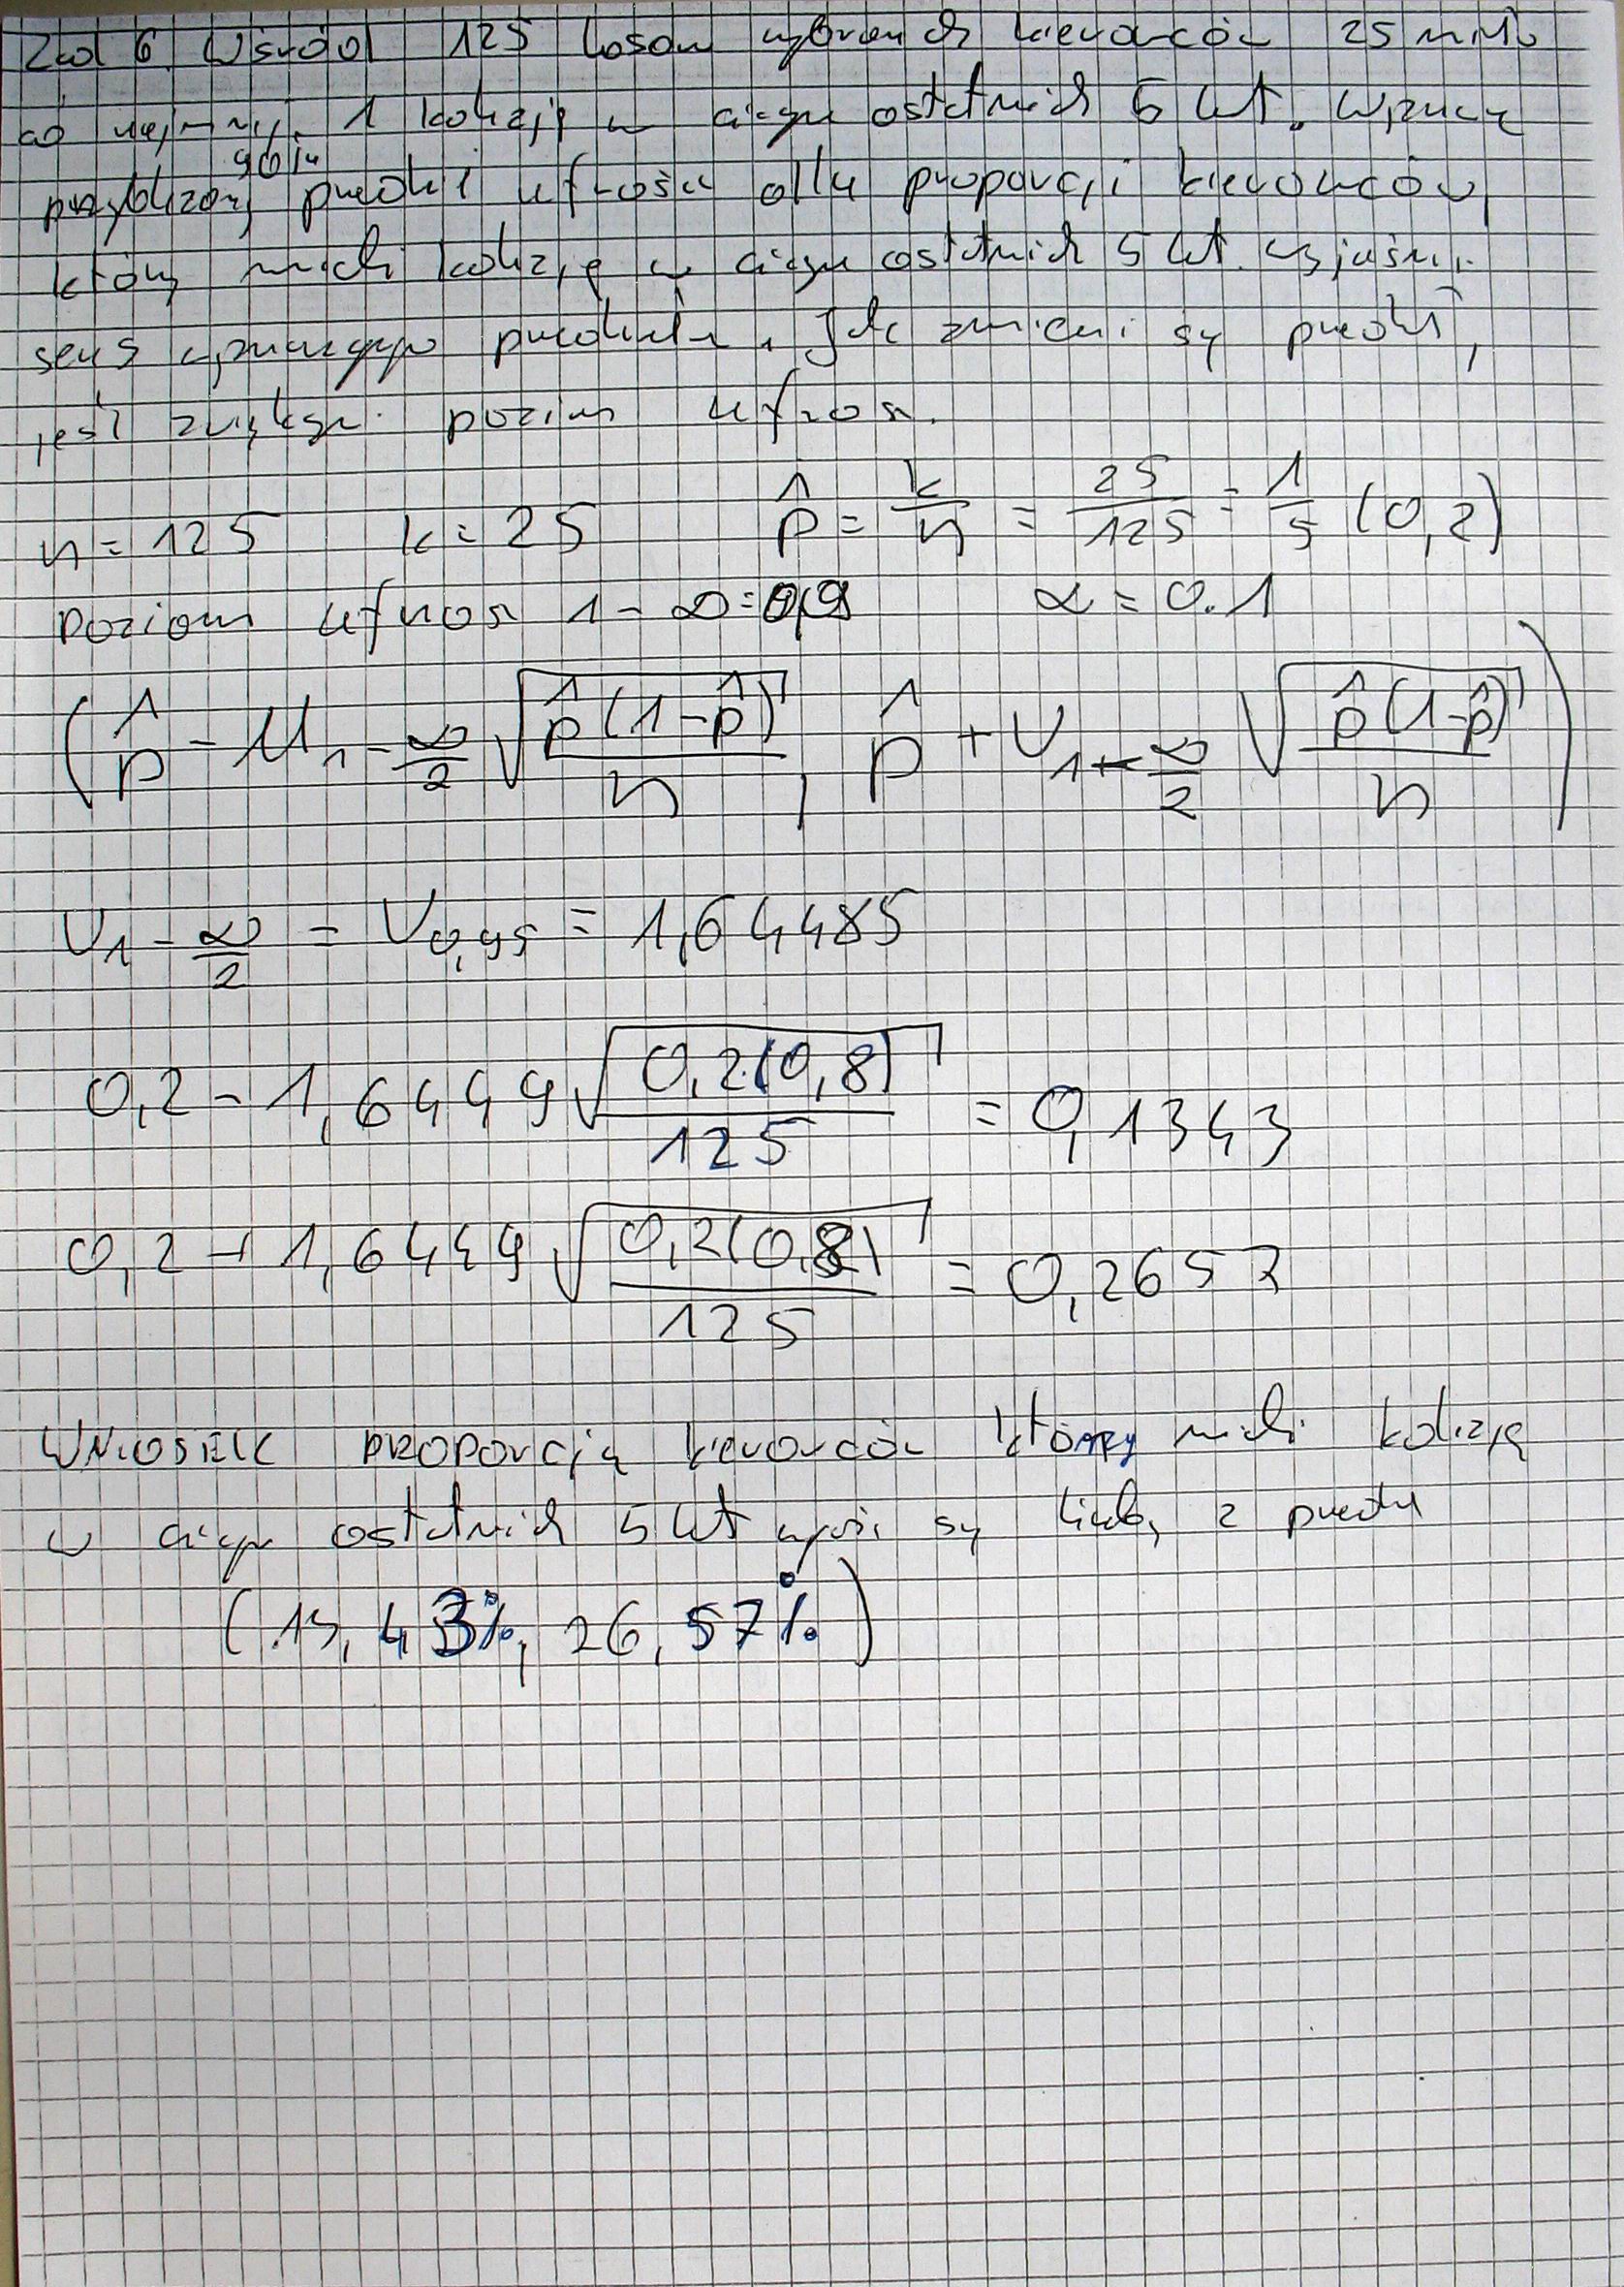 Zad 6. Wśród 125 losow wybranych kierowców 25 miało
co najmniej 1 kolizję w ciągu ostatnich 5 lat. Wyznacz
90%
przybliżony przedi ufności dla proporcji kierowców,
którzy mieli kolizję w ciągu ostatnich 5 lat. Wyjaśnij
sens wyznaczonego przedziału. Jak zmieni się przedi,
jeśli zwiększ. poziom ufnos.
n = 125 k = 25 p̂ = k/n = 25/125 = 1/5 (0,2)
Poziom ufnos 1 - α = 0,9 α = 0.1
(p̂ - u₁₋α/2 √(p̂(1-p̂)/n), p̂ + U₁₋α/2 √(p̂(1-p̂)/n))
U₁₋α/2 = U₀,₉₅ = 1,64485
0,2 - 1,6449 √(0,2(0,8)/125) = 0,1343
0,2 + 1,6449 √(0,2(0,8)/125) = 0,2657
WNIOSEK PROPORCJA kierowców którzy mieli kolizję
w ciągu ostatnich 5 lat wyraża się liczbą z przedu
(13,43%, 26,57%)